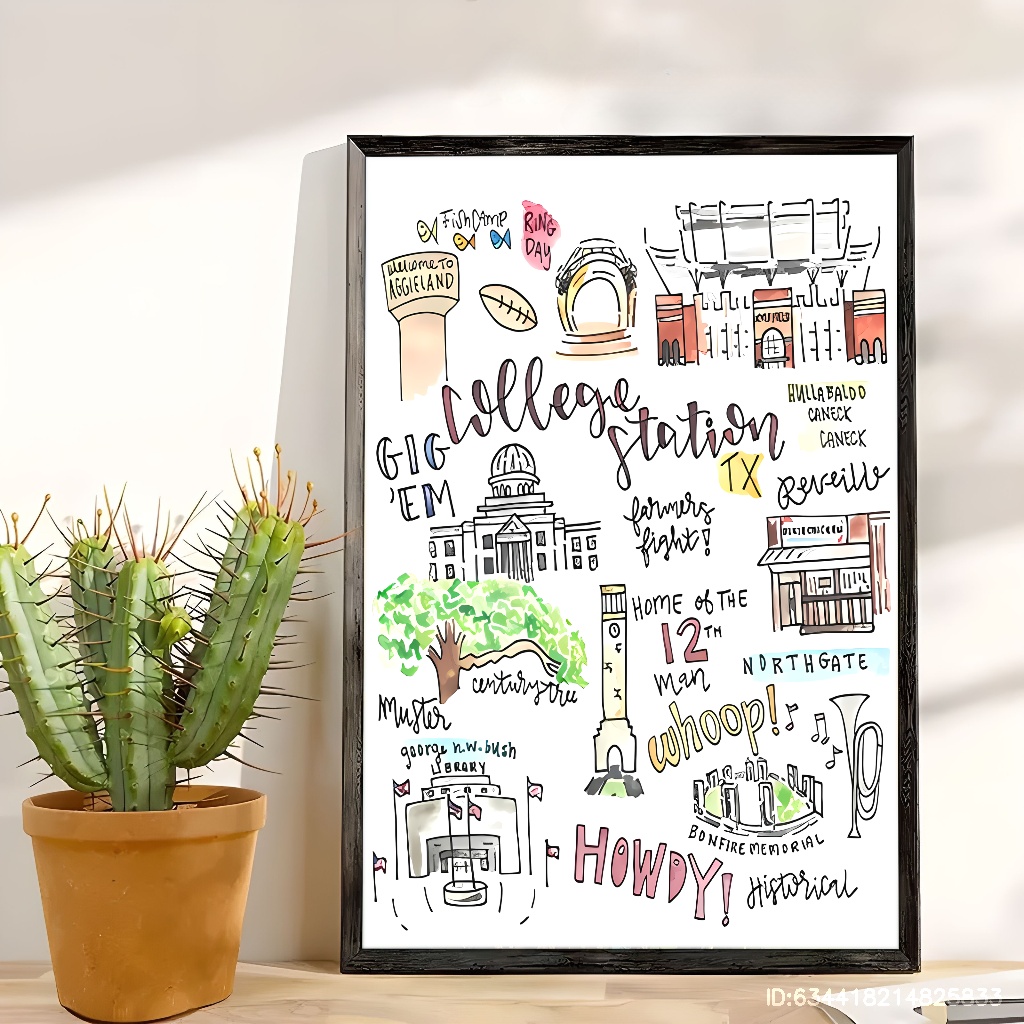 Fish Camp
RING
DAY
Welcome TO
AGGIELAND
College
Station
TX
HULLABALOO
CANECK
CANECK
GIG
'EM
Reveille
farmers
fight!
HOME of THE
12TH
man
NORTHGATE
century tree
Muster
whoop!
george h.w. bush
LIBRARY
BONFIRE MEMORIAL
HOWDY!
Historical
ID:634418214825933